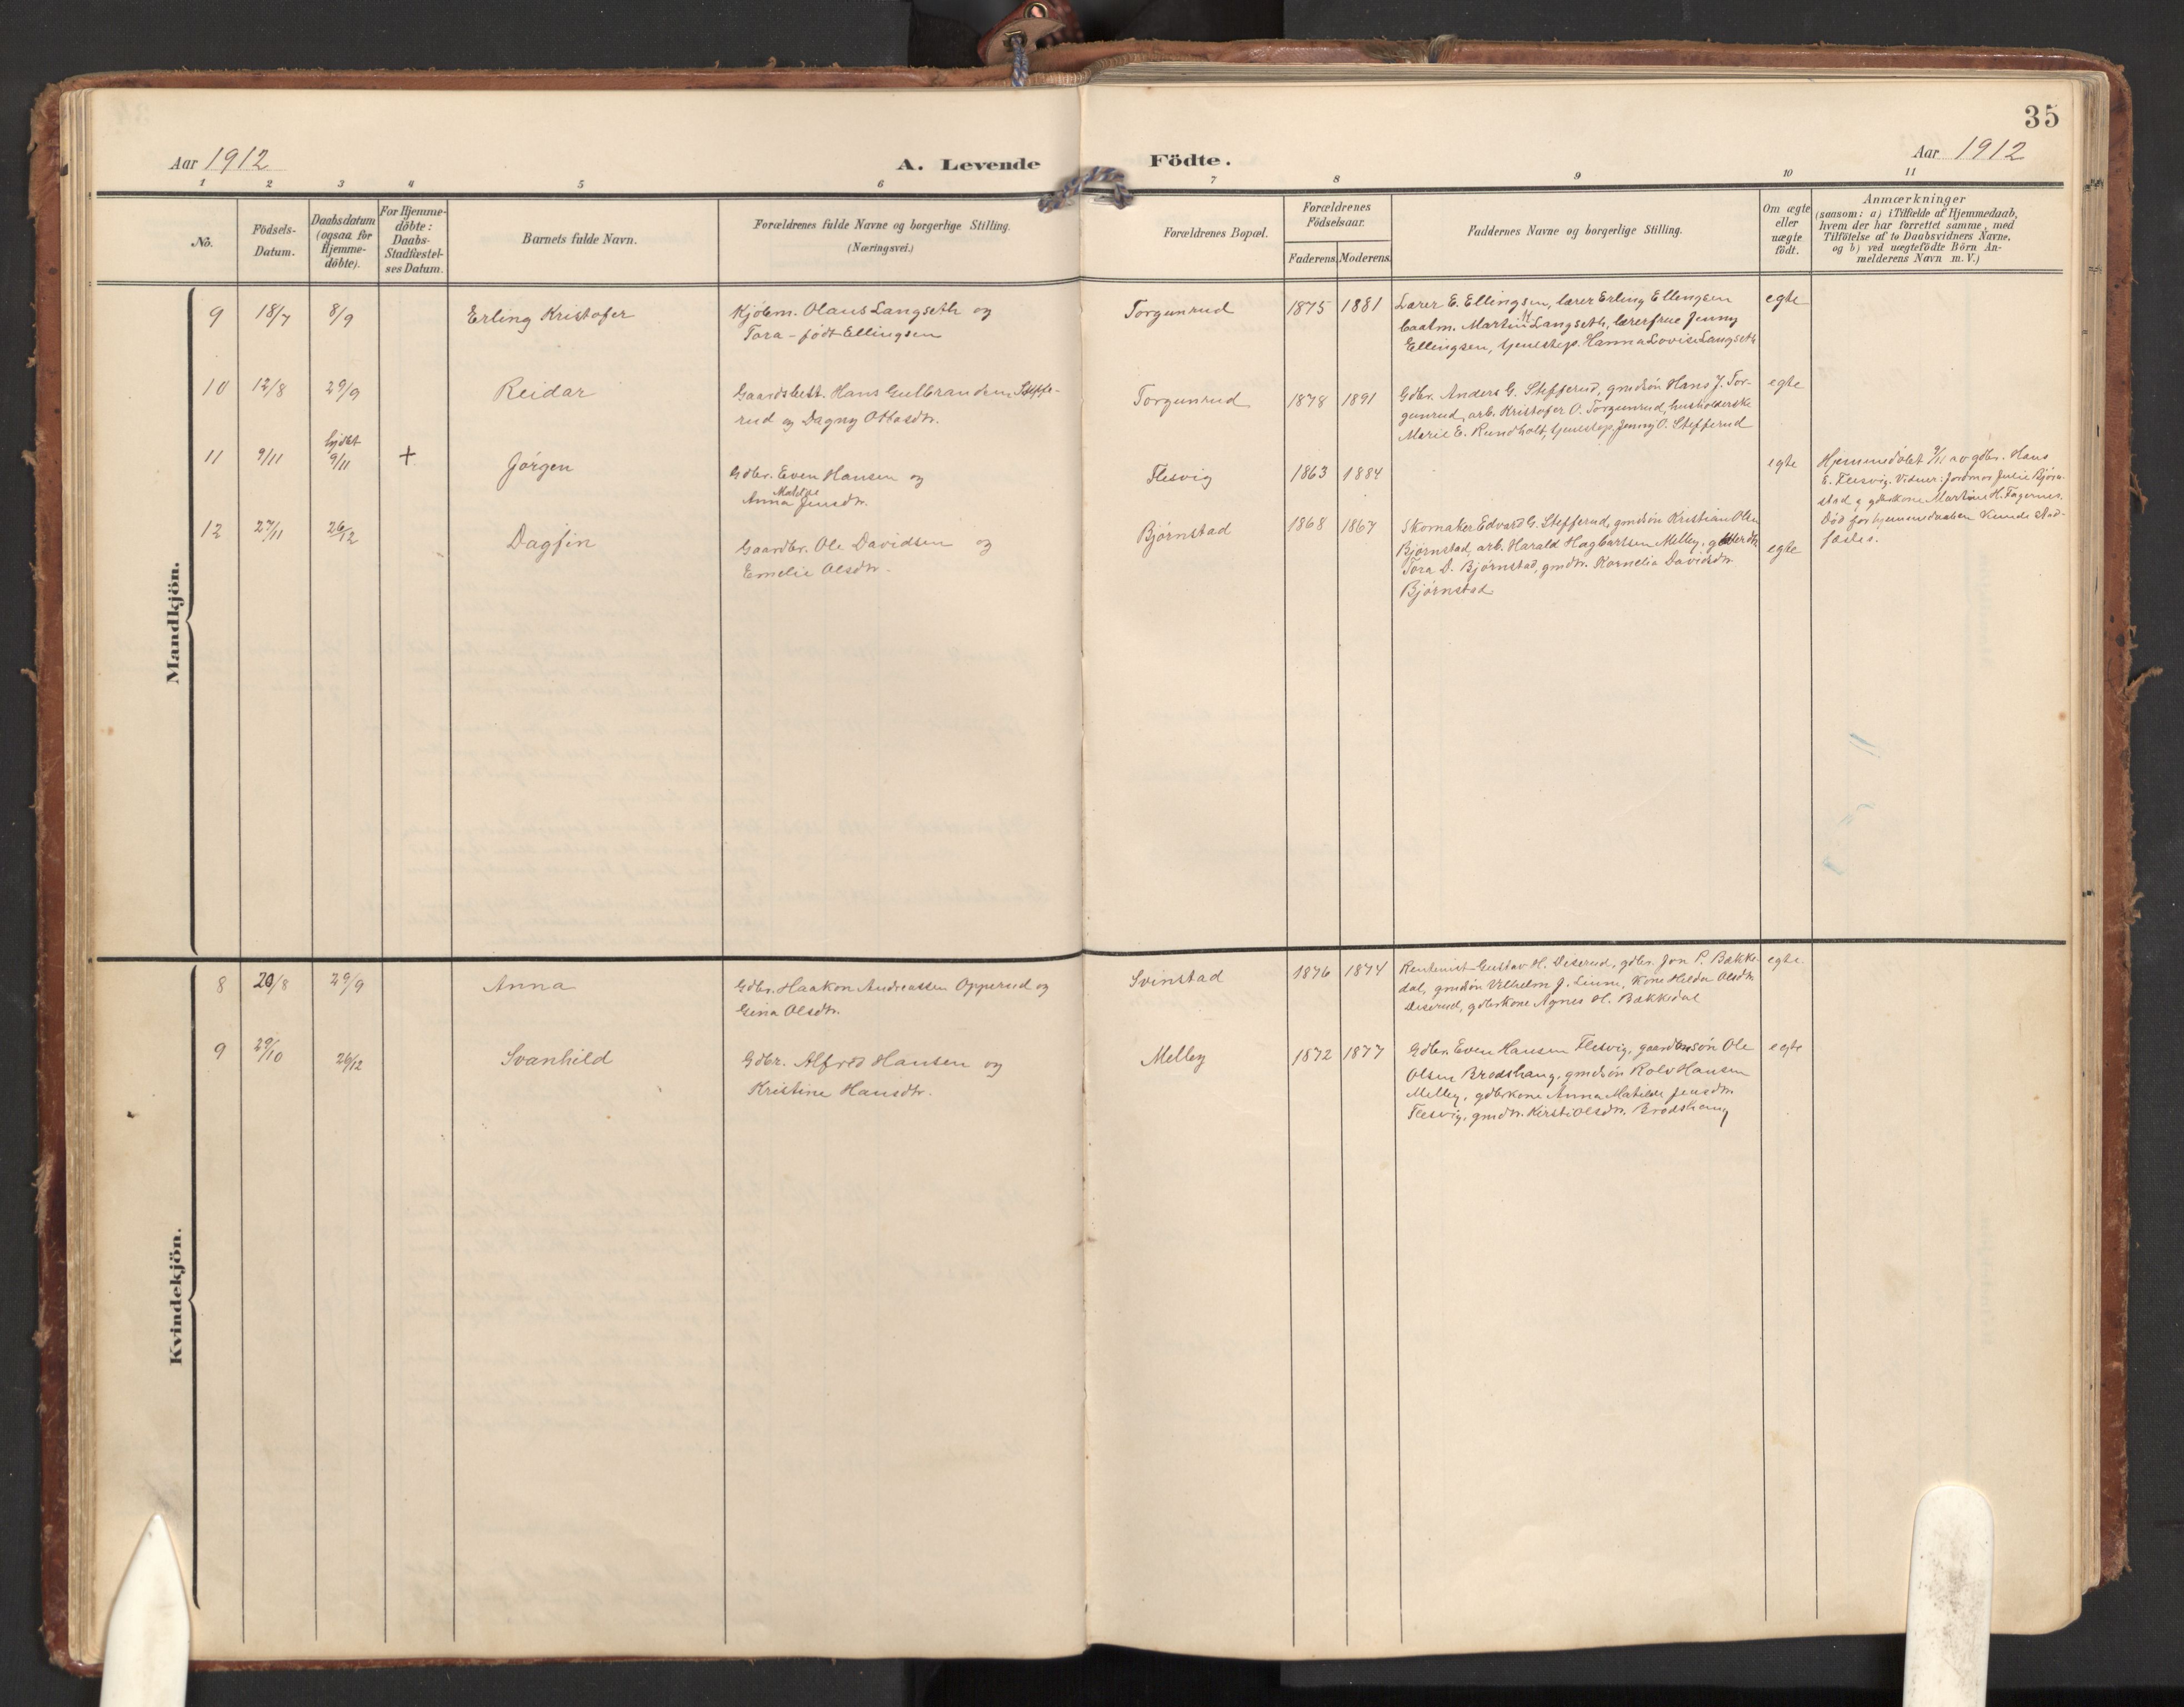 35
Aar 1912
A. Levende Födte.
Aar 1912
1 2 3 4 5 6 7 8 9 10 11
Nö.
Födsels-
Datum.
Daabsdatum
(ogsaa for
Hjemme-
döbte).
For Hjemme-
döbte:
Daabs-
Stadfæstel-
ses Datum.
Barnets fulde Navn.
Forældrenes fulde Navne og borgerlige Stilling.
(Næringsvei.)
Forældrenes Bopæl.
Forældrenes
Födselsaar.
Faderens. Moderens.
Faddernes Navne og borgerlige Stilling.
Om ægte
eller
uægte
födt.
Anmærkninger
(saasom: a) i Tilfælde af Hjemmedaab,
hvem der har forrettet samme, med
Tilföielse af to Daabsvidners Navne,
og b) ved uægtefödte Börn An-
melderens Navn m. V.)
Mandkjön.
9 18/7 8/9
Erling Kristofer
Kjøbm. Olaus Langseth og
Tora - født Ellingsen
Torgunrud
1875 1881
Lærer E. Ellingsen, lærer Erling Ellingsen
baatm. Martin K Langseth, lærerfrue Jenny
Ellingsen, tjenestep. Hanna Lovise Langseth
egte
10 12/8 29/9
Reidar
Gaardsbest. Hans Gulbrandsen Steffe-
rud og Dagny Ottosdtr.
Torgunrud
1878 1891
Gdbr. Anders G. Stefferud, gmdsøn Hans J. Tor-
gunrud, arb. Kristofer O. Torgunrud, husholderske
Marie E. Rundholt, tjenestep. Jenny O. Stefferud
egte
11 9/11 hjdbt 9/11 +
Jørgen
Gdbr. Even Hansen og
Anna Matilde Jensdtr.
Flesvig
1863 1884
egte
Hjemmedøbt 9/11 av gdbr. Hans
E. Flesvig. Vidner: Jordmor Julie Bjørn-
stad og gdbrkone Martine H. Fagernes.
Død før hjemmedaaben kunde stad-
festes.
12 27/11 26/12
Dagfin
Gaardbr. Ole Davidsen og
Emelie Olsdtr.
Bjørnstad
1868 1867
Skomaker Edvard G. Stefferud, gmdsøn Kristian Olsen
Bjørnstad, arb. Harald Hagbartsen Melby,
Tora D. Bjørnstad, gmdtr. Kornelia Davidsdtr.
Bjørnstad
egte
Kvindekjön.
8 20/8 29/9
Anna
Gdbr. Haakon Andreassen Opperud og
Gina Olsdtr.
Svinstad
1876 1874
Rentenist Gustav H. Diserud, gdbr. Jon P. Bakke-
dal, gmdsøn Vilhelm J. Linne, Kone Hilda Olsdtr.
Diserud, gdbrkone Agnes H. Bakkedal
egte
9 29/10 26/12
Svanhild
Gdbr. Alfred Hansen og
Kristine Hansdtr.
Melby
1872 1877
Gdbr. Even Hansen Flesvig, gaardbrsøn Ole
Olsen Brodshaug, gmdsøn Rolv Hansen
Melby, gdbrkone Anna Matilde Jensdtr.
Flesvig, gmdtr. Kirsti Olsdtr. Brodshaug
egte